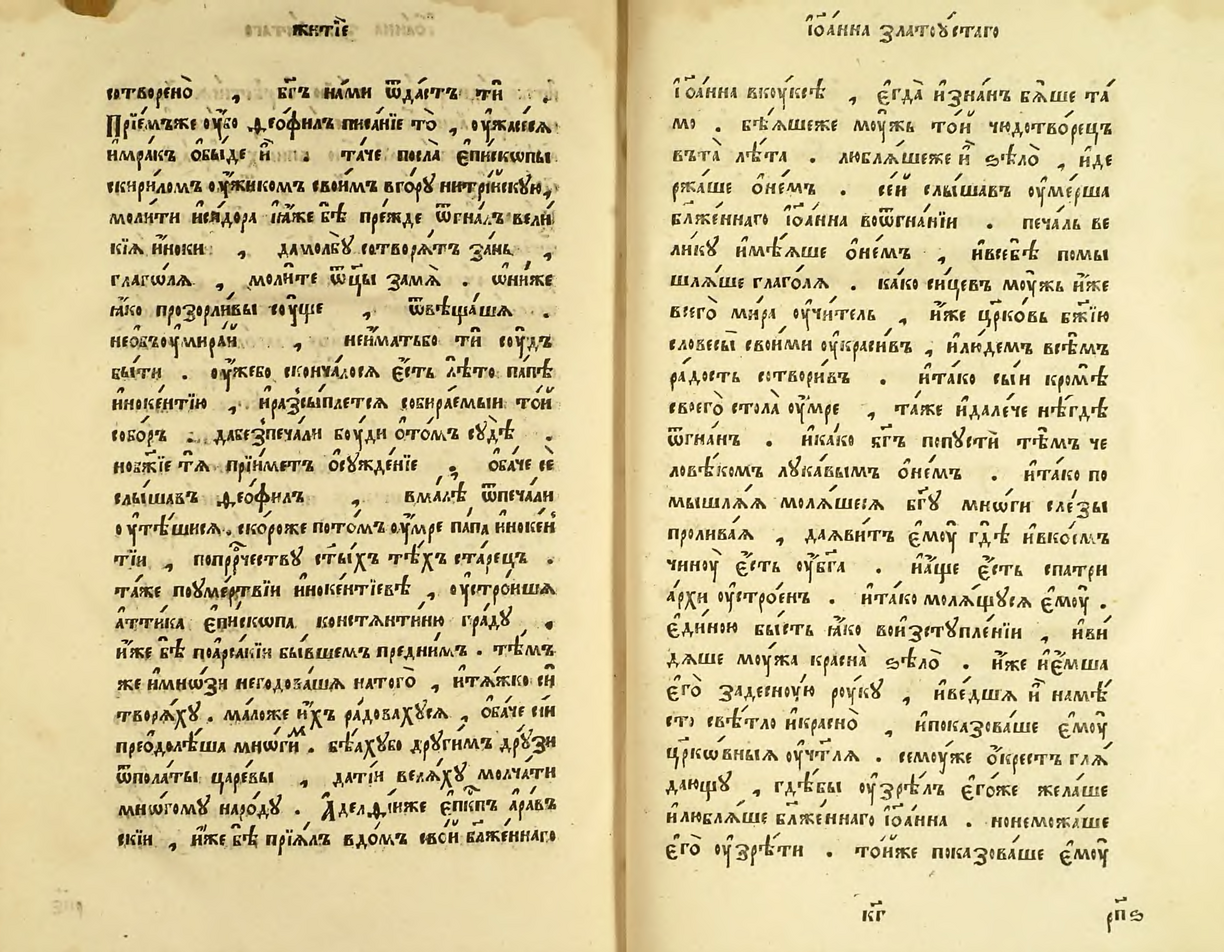 житїе
сотворено̀ , бг҃ъ нами ѿда́стъ ти .
Прїе́мъже оу҆́бо ѳео́филъ писа́нїе то̀ , оу҆жасеся
и҆мра́къ ѡ҆бы́де и҆̀ . та́че посла̀ є҆пи́скѡпы
скири́ломъ оу҆́жикомъ свои́мъ вго́рꙋ нитрі́йскꙋю,
моли́ти иси́дора и҆́аже бѣ̀ пре́жде ѿгна́лъ вели́
кїѧ и҆́ноки , дамолбꙋ̀ сотворѧ́тъ за́нь ,
глаго́лѧ , моли́те ѿц҃ы замѧ̀ . ѡ҆ни́же
ꙗ҆́ко прозорли́вы со́уще , ѿвѣща́шѧ .
необъоумира́и , неи҆́матьбо ти́ соу́дъ
бы́ти . оу҆жебо сконча́лосѧ є҆́сть лѣ́то па́пѣ
и҆ноке́нтїю , и҆разсы́плетсѧ собира́емыи то́й
собо́ръ . дабезпеча́ли бо́уди ѡ҆то́мъ сꙋдѣ̀ .
нобж҃їе тѧ̀ прїи́метъ ѡ҆сꙋжде́нїе . ѻ҆ба́че сѐ
слы́шавъ ѳео́филъ , вма́лѣ ѿпеча́ли
оутѣ́шисѧ . ско́роже пото́мъ оу҆́мре па́па и҆ноке́н
тїи , попрⷪ҇рчествꙋ ст҃ы́хъ тѣ́хъ ста́рецъ .
та́же поуме́ртвїи и҆ноке́нтїевѣ , оу҆стро́ишѧ
а҆тти́ка є҆пи́скѡпа констѧнти́ню гра́дꙋ .
и҆́же бѣ̀ поарса́кїи бы́вшемъ пре́днимъ . тѣ́мъ
же и҆мно́ѕи негодова́шѧ на́того̀ , и҆тѧ́жко сѝ
творѧ́хꙋ . ма́ложе и҆́хъ ра́довахꙋсѧ , ѻ҆ба́че сі́и
преѡ҆долѣ́ша мно́гиⷨ . бѣ́ахꙋбо дрꙋги́мъ дрꙋ́зи
ѿпола́ты царе́вы , да́тіи велѧ́хꙋ молча́ти
мно́гомꙋ наро́дꙋ . А҆делѳі́иже є҆пⷭ҇кпъ ара́в
скїи , и҆́же бѣ̀ прїѧ́лъ вдо́мъ сво́й блаже́ннаго
і҆ѡа́нна златоу́стаго
І҆ѡа́нна вкоукꙋ́сѣ , є҆гда̀ и҆́згнанъ бѧ́ше та́
мо . бѣ́ѧшеже моу́жъ то́й чюдотво́рецъ
въта̀ лѣ́та . люблѧ́шеже и҆̀ ѕѣло̀ , и҆де
ржа́ше ѻ҆не́мъ . се́й слы́шавъ оу҆ме́рша
блаже́ннаго і҆ѡа́нна воѿгна́нїи . печа́ль ве
ли́кꙋ и҆мѣ́ѧше ѻ҆не́мъ , и҆всебѣ̀ помы
шлѧ́ше глаго́лѧ . ка́ко си́цевъ моу́жъ и҆́же
всего̀ ми́ра оу҆чи́тель , и҆́же цр҃ковь бж҃їю
словесы̀ свои́ми оу҆краси́въ , и҆лю́демъ всѣ́мъ
ра́дость сотвори́въ . и҆та́ко сы́и кромѣ̀
своего̀ стола̀ оу҆́мре , та́же и҆дале́че нѣ́гдѣ
ѿгна́нъ . и҆ка́ко бг҃ъ попꙋстѝ тѣ́мъ че
ловѣ́комъ лꙋка́вымъ ѻ҆не́мъ . и҆та́ко по
мышлѧ́ѧ молѧ́шесѧ бг҃ꙋ мно́ги сле́зы
пролива́ѧ , даѧ҆ви́тъ є҆моу̀ гдѣ̀ и҆вко́емъ
чиноу̀ є҆́сть оу҆́бга . и҆а҆́ще є҆́сть спатри
а́рхи оу҆стро́енъ . и҆та́ко молѧ́щꙋсѧ є҆моу̀ .
є҆ди́ною бы́сть ꙗ҆́ко воизстꙋпле́нїи , и҆ви́
дѧше моу́жа красна̀ ѕѣло̀ . и҆́же и҆є҆́мша
є҆го̀ задесноу́ю ро́укꙋ , и҆ве́дшѧ и҆̀ намѣ́
сто свѣ́тло и҆кра́сно , и҆показова́ше є҆моу̀
цр҃ко́вныѧ оу҆чт҃лѧ . семоу́же ѻ҆́крестъ глѧ́
дающꙋ , гдѣ́бы оу҆зрѣ́лъ є҆го́же жела́ше
и҆люблѧ́ше блаже́ннаго і҆ѡа́нна . нонемо́жаше
є҆го̀ оу҆зрѣ́ти . то́йже показова́ше є҆моу̀
кг҃ рп҃ѕ